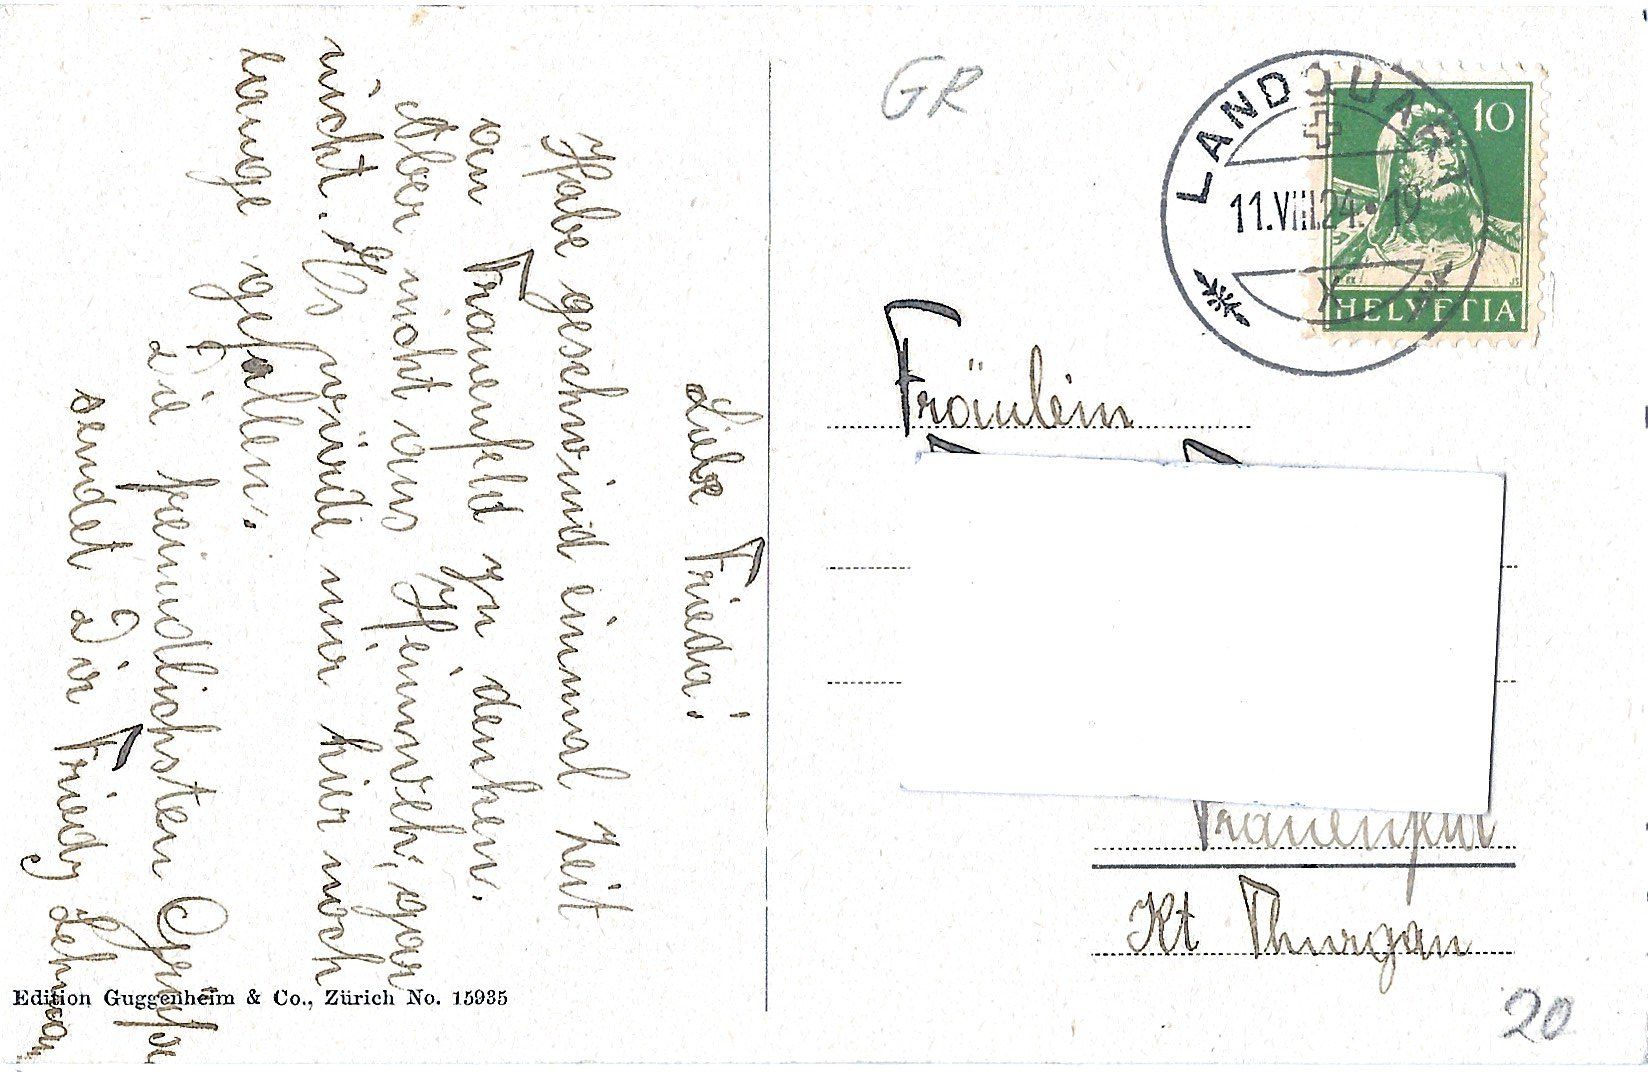 Liebe Frieda!
Habe geschwind einmal Zeit
an Frauenfeld zu denken.
Aber nicht aus Heimweh, gar
nicht. Es würde mir hier noch
lange gefallen.
Die freundlichsten Grüsse
sendet Dir Friedy Lehman
Edition Guggenheim & Co., Zürich No. 15935
GR
LANDQUART
11.VIII.24.-19
X
10
HELVETIA
Fräulein
Frauenfeld
Kt Thurgau
20